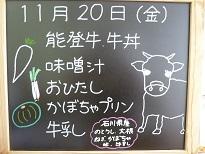 11月20日(金)
能登牛.牛丼
味噌汁
おひたし
かぼちゃプリン
牛乳
石川県産
のとうし 大根
ねぎ かぼちゃ
牛乳